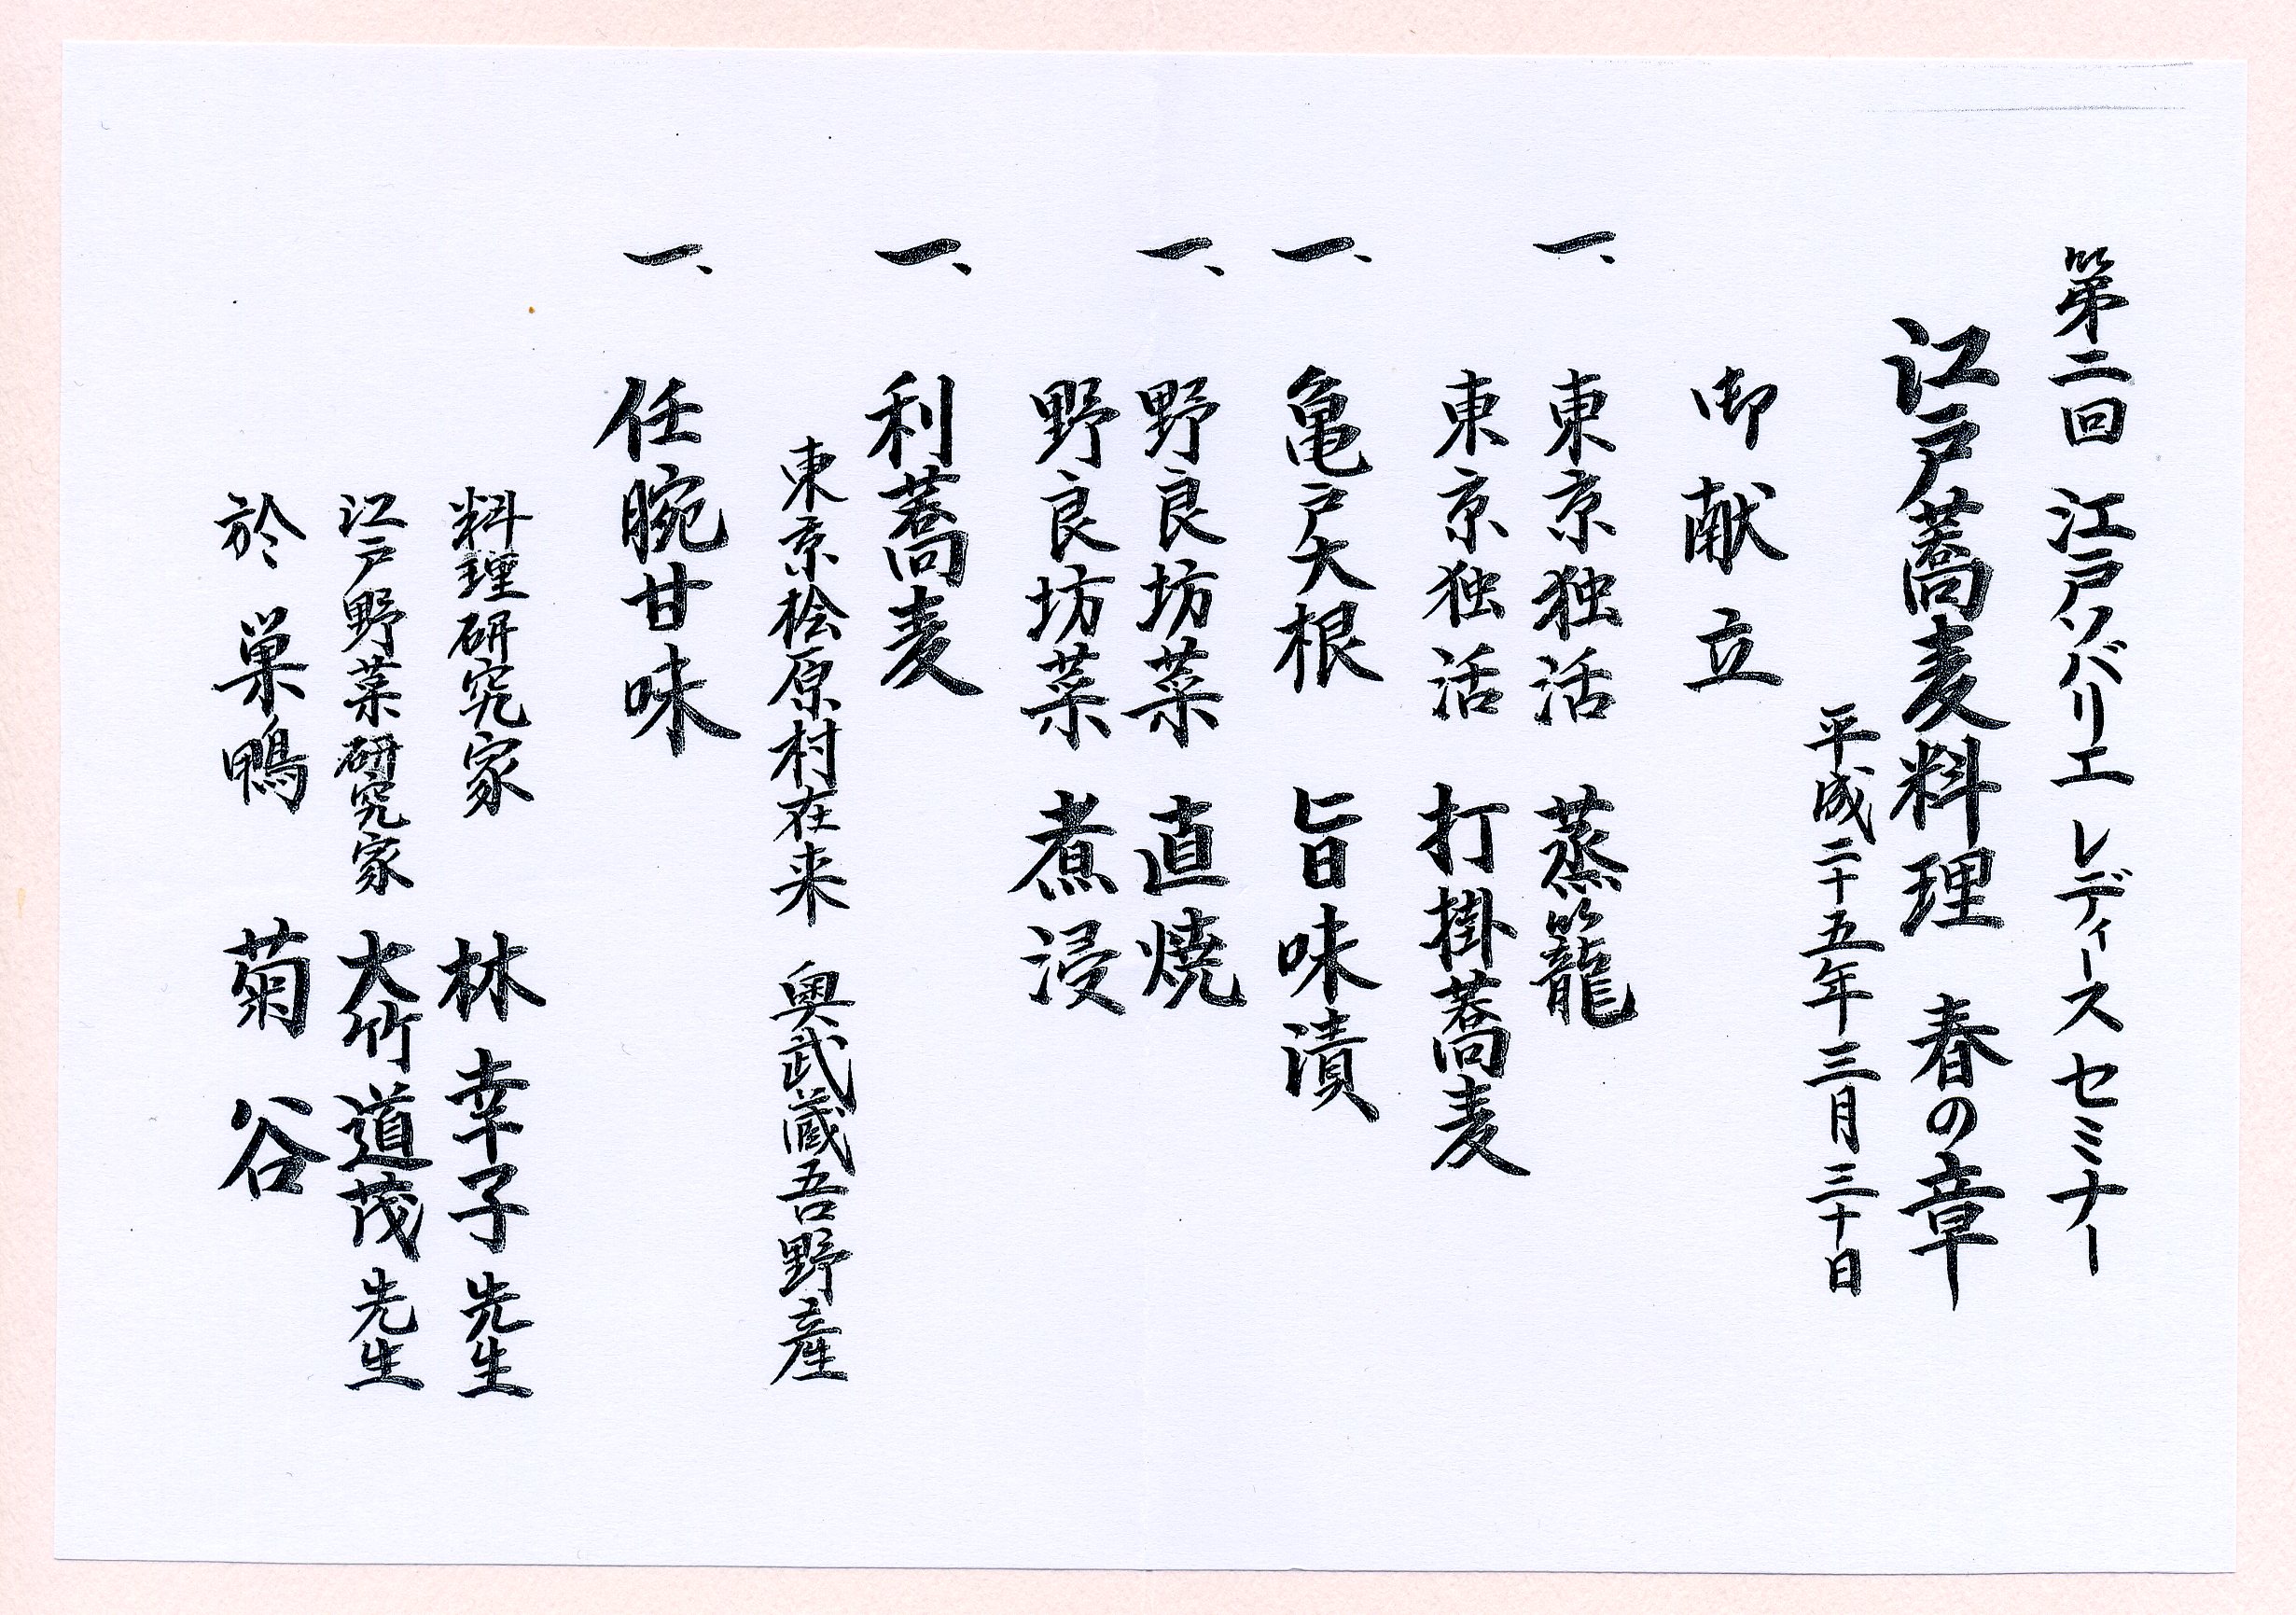 第二回 江戸ソバリエ レディース セミナー
江戸蕎麦料理 春の章
平成二十五年 三月 三十日
御献立
一、 東京独活 蒸籠
東京独活 打掛蕎麦
一、 亀戸大根 旨味漬
一、 野良坊菜 直焼
野良坊菜 煮浸
一、 利蕎麦
東京桧原村在来 奥武蔵吾野産
一、 任腕甘味
料理研究家 林 幸子 先生
江戸野菜研究家 大竹道茂 先生
於 巣鴨 菊谷